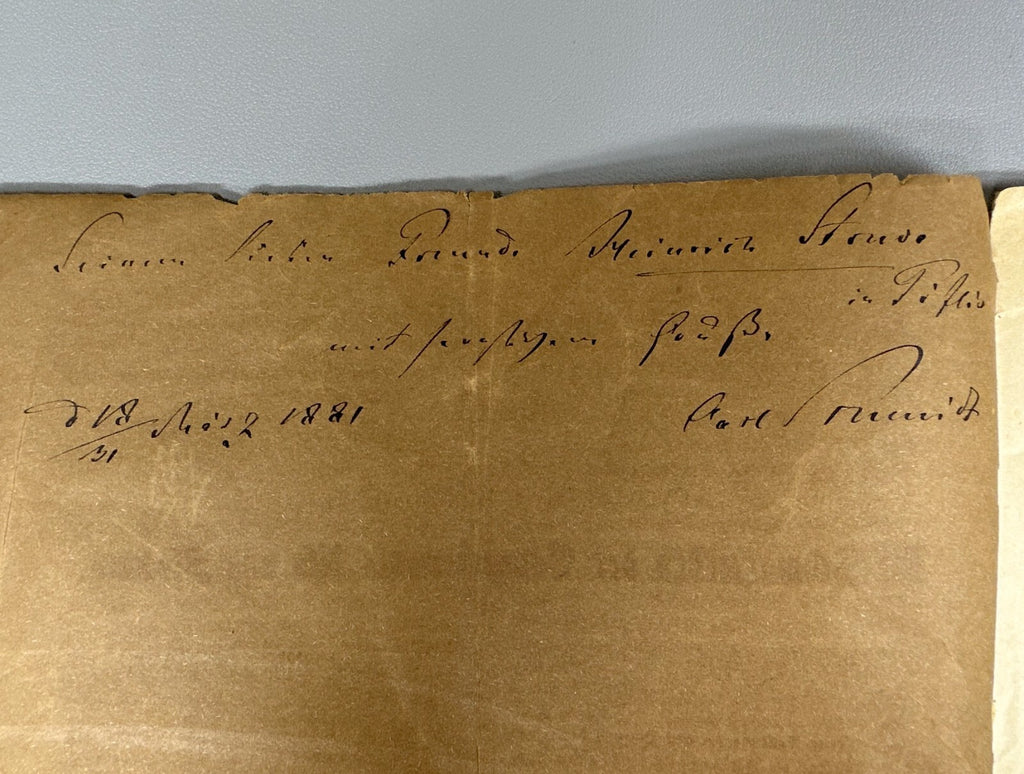 Seinem lieben Freunde Heinrich Struve
in Tiflis
mit herzlichem Gruße.
d 18/31 März 1881
Carl Schmidt